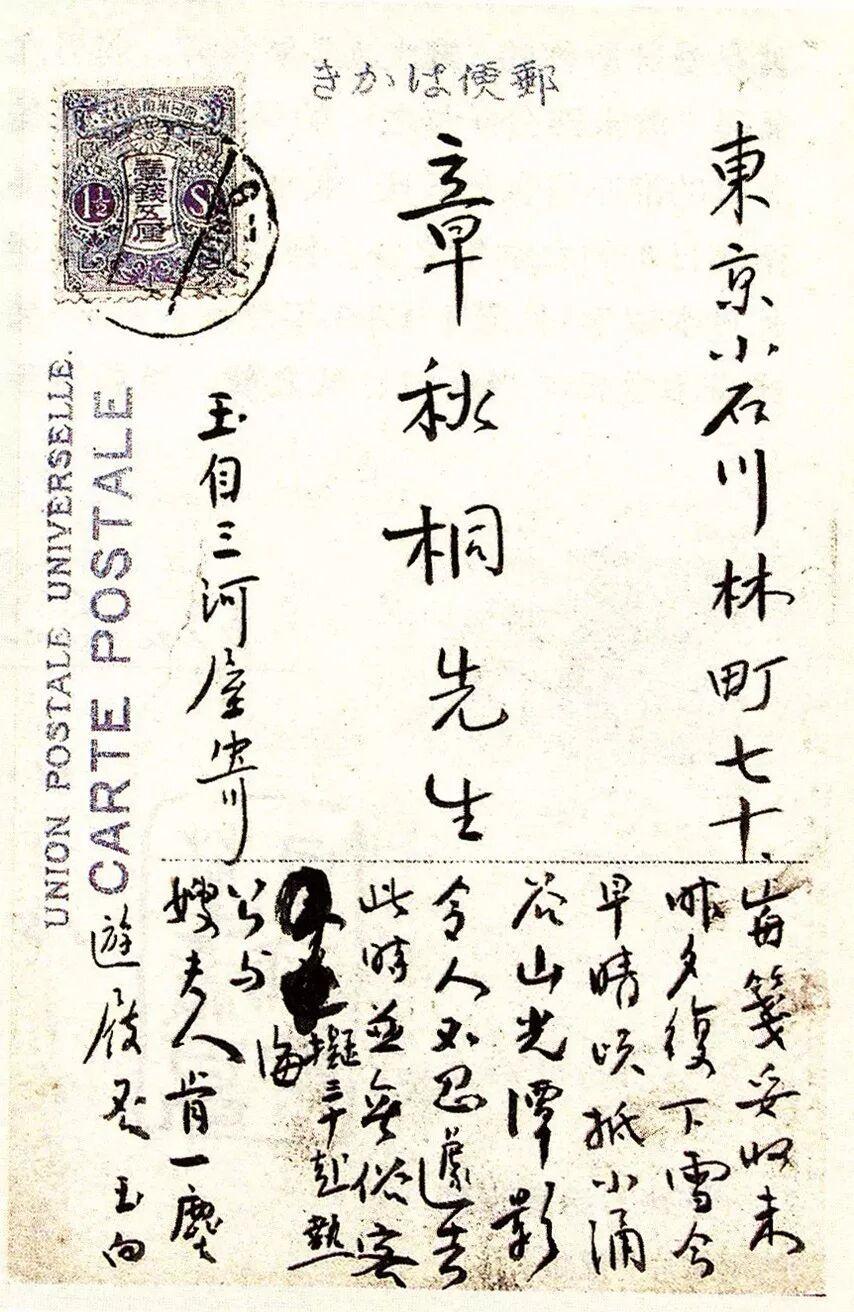 きかは便郵
大日本帝國郵便
壹錢五厘
1½ Sⁿ
UNION POSTALE UNIVERSELLE.
CARTE POSTALE
東京小石川林町七十、
章秋桐先生
玉自三河屋寄
箋妥收未
昨夕復下雪今
早晴 抵小涌
谷山光潭影
令人不忍遽去
此時並無俗客
擬三十起熱
海
公与
嫂夫人肯一塵
遊屐否 玉向